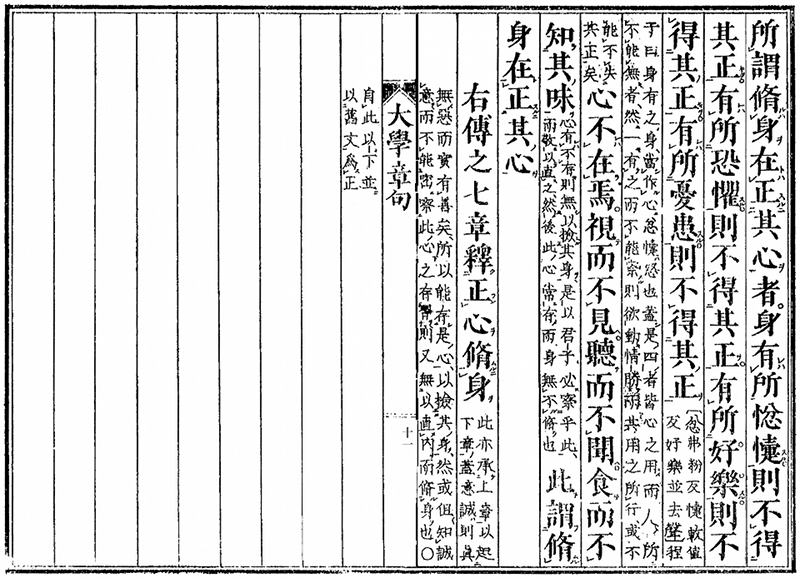 所謂脩身在正其心者身有所忿懥則不得
其正有所恐懼則不得其正有所好樂則不
得其正有所憂患則不得其正忿弗粉反懥敕值
反好樂並去聲程
子曰身有之身當作心忿懥怒也蓋是四者皆心之用而人所
不能無者然一有之而不能察則欲動情勝而其用之所行或不
能不失
其正矣心不在焉視而不見聽而不聞食而不
知其味心有不存則無以檢其身是以君子必察乎此
而敬以直之然後此心常存而身無不脩也此謂脩
身在正其心
右傳之七章釋正心脩身此亦承上章以起
下章蓋意誠則真
無惡而實有善矣所以能存是心以檢其身然或但知誠
意而不能密察此心之存否則又無以直內而脩身也○
大學章句
十一
自此以下並
以舊文為正